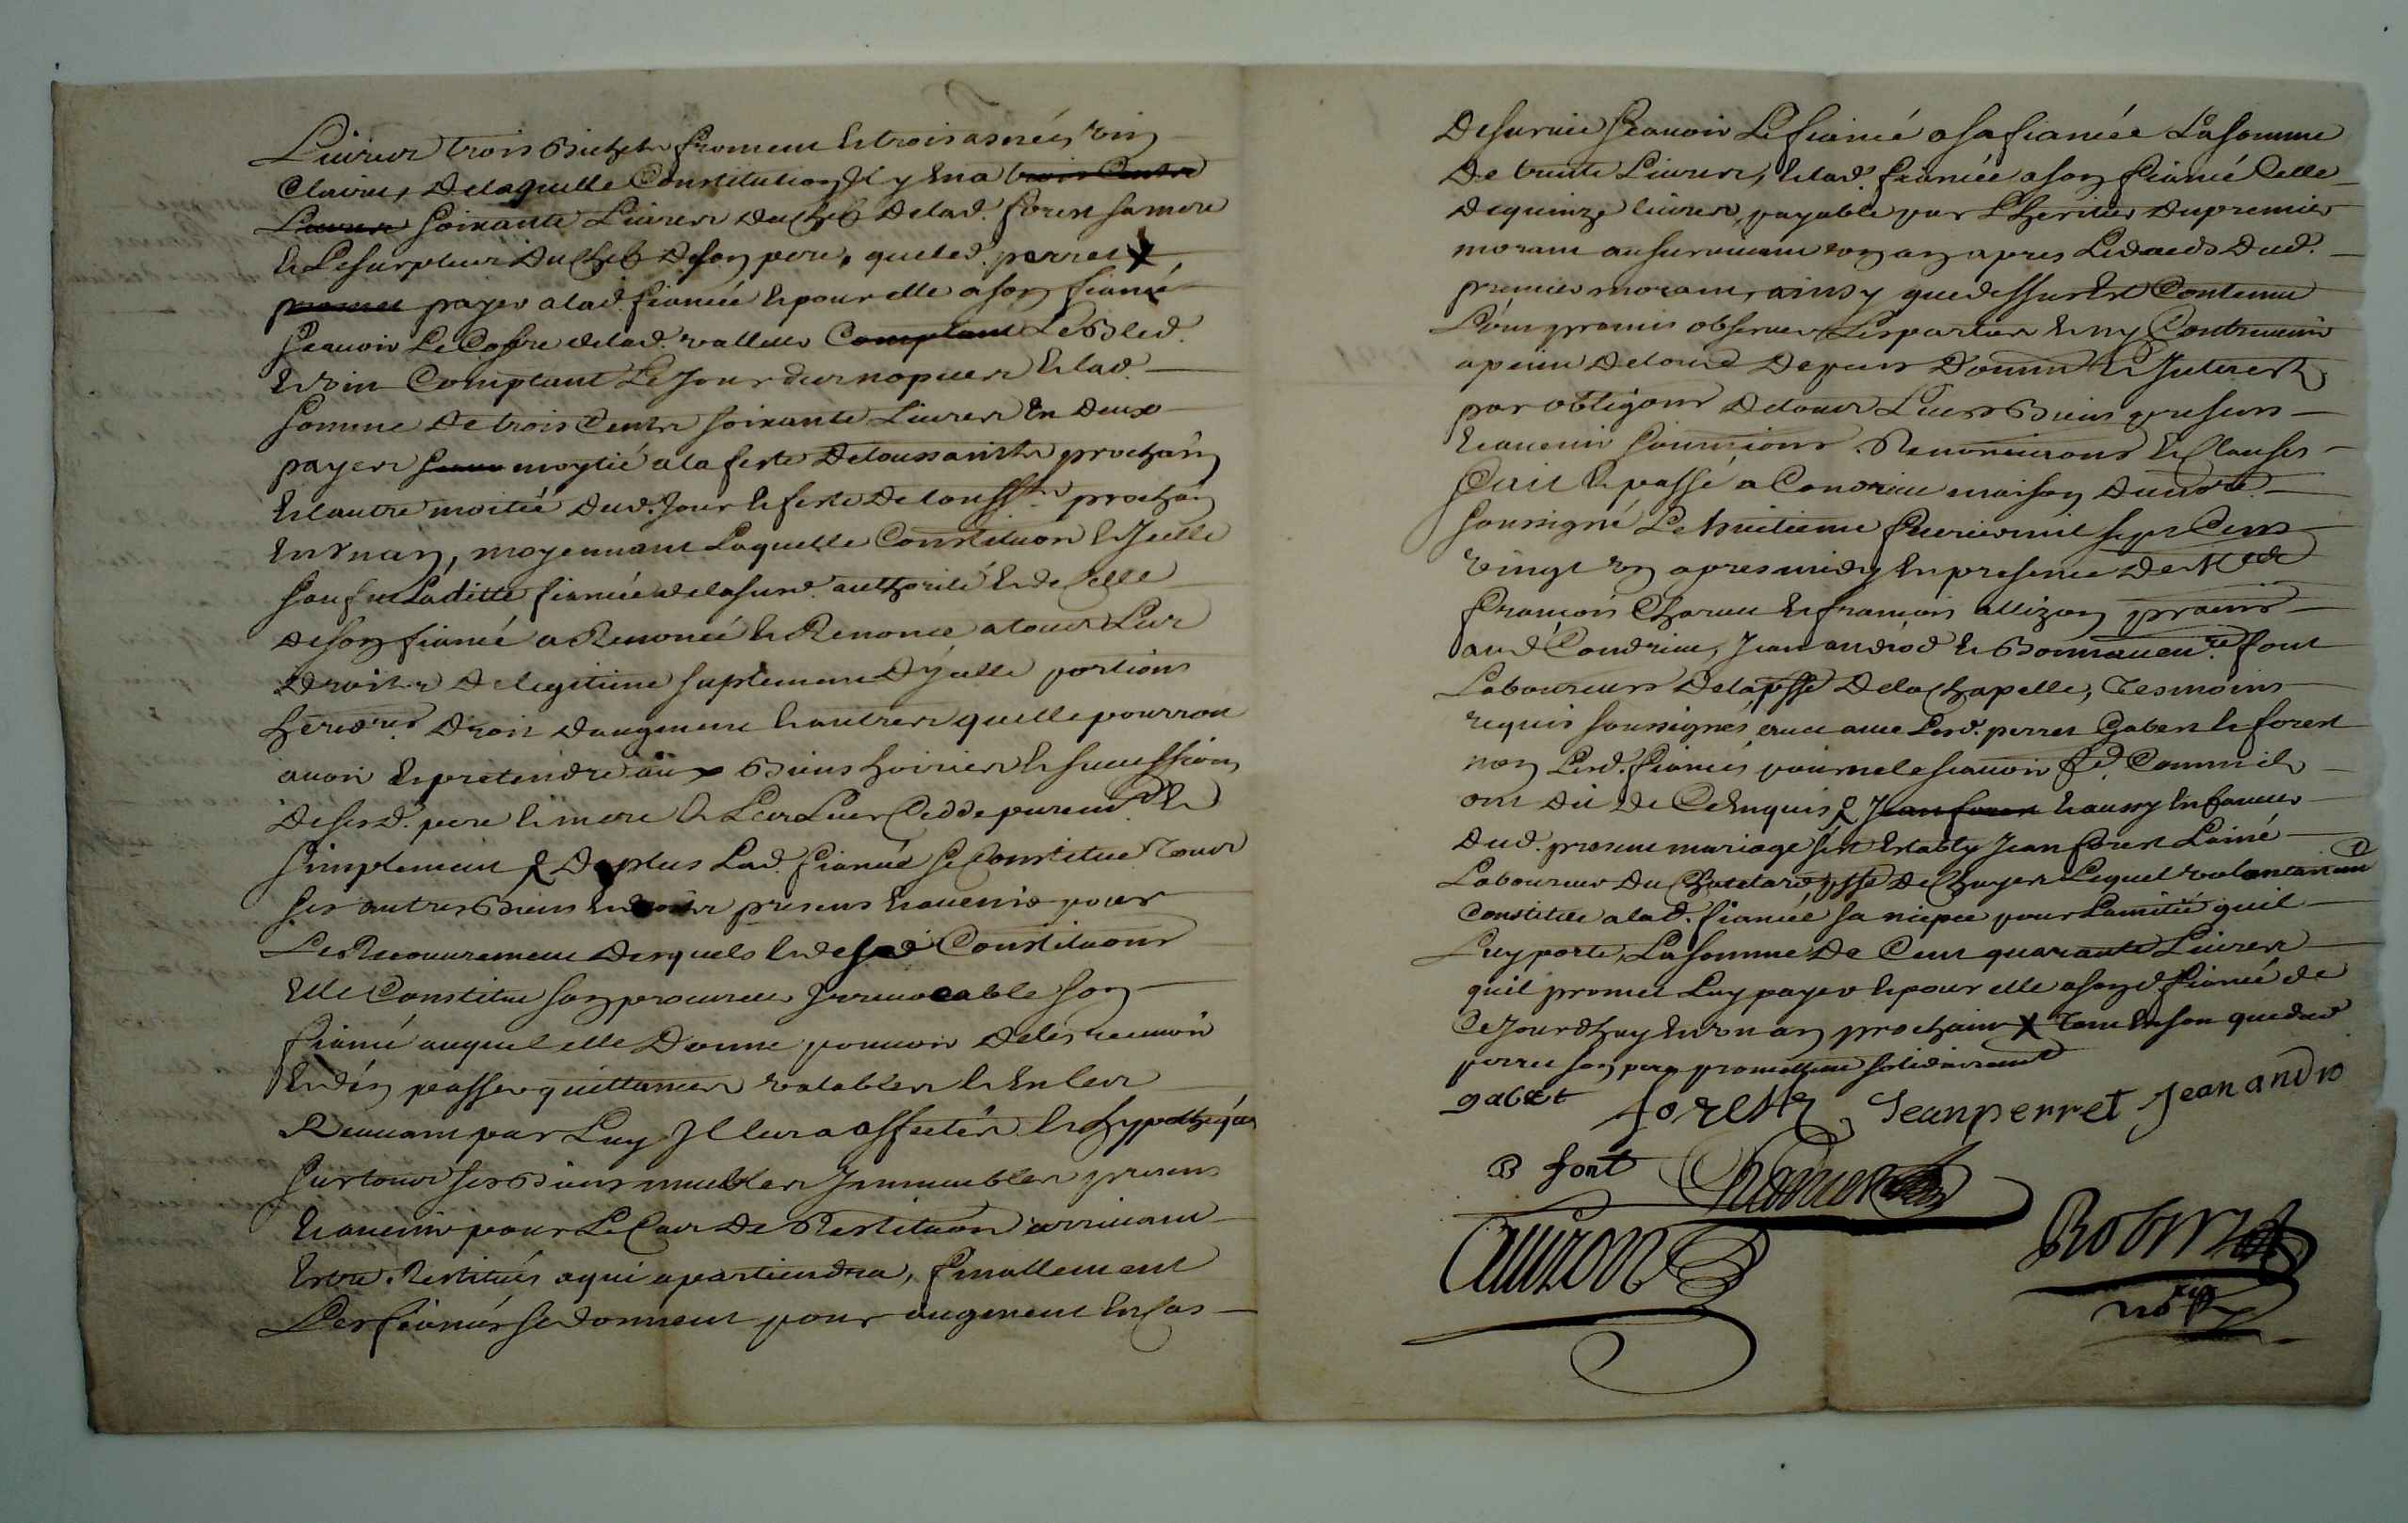 Livres trois Bichets froment et trois asnées vin
Clairet, De laquelle Constitution Il y En a trois Cents
Livres soixante Livres du chef De lad. forest sa mere
et Le surplus Du chef De son pere, que led. perret X
promet payer a lad. fiancée et pour elle a son fiancé
scauoir Le Coffre de lad. valleur Comptant Le Bled.
et vin Comptant Le Jour des nopces et lad.
somme De trois Cents soixante Livres En deux
payes moytié a la feste De toussaints prochain
et l'autre moitié Dud. Jour et feste De toussts prochain
En Un an, moyennant Laquelle Constituon et Icelle
sauf Laditte fiancée de la susd. authorité et de Celle
De son fiancé a Renoncé et Renonce a tous Les
Droits De legitime suplement D'ycelle portions
Droit daugment et autres quelle pourroit
auoir et pretendre aux Biens hoiries et successions
De sesd. pere et mere et Les Leur Cedde purement et
simplement & De plus Lad. fiancée se Constitue Tous
ses autres Biens et droits presens et auenir pour
Le Recouurement Desquels et de sad Constituons
Elle Constitue son procureur Irreuocable son
fiancé auquel elle Donne pouuoir De les receuoir
Et d'en passer quittances valables et En les
Receuant par Luy Il les a affectés et hypothéqués
sur tous ses Biens meubles Immeubles presens
et auenir pour Le Cas De Restituon arriuant
Estre Restitués a qui apartiendra, finallement
Les fiancés se donnent pour augment En Cas
De suruie scauoir Le fiancé a sa fiancée La somme
De trente Livres, et lad. fiancée a son fiancé Celle
De quinze livres, payable par L'heritier du premier
mourant au suruiuant un an apres Le deceds Dud.
premier mourant, ainsy que dessus Est Contenu
L'ont promis obseruer Les parties et n'y Contreuenir
a peine De tous Depens Domm et Interests
par obligaons De tous Leurs Biens presens
et auenir soumissions Renonciaons et Clauses
fait et passé a Condrieu maison Du nore
soussigné Le huitieme feurier mil sept Cens
vingt Un apres midy En presence De
françois et françois allizon
aud Condrieu, Jean androd et Bonnauenre font
Laboureurs De la psse De la Chapelle, Tesmoins
requis soussignés auec Lesd. perret Gabert et forest
non Lesd. fiancés pour ne le scauoir Comme ils
ont dit De Ce Enquis & Jean forest et aussy En faueur
Dud. present mariage s'est Estably Jean forest Lainé
Laboureur Du psse De Chuyer Lequel volontairement
Constitue a lad. fiancée sa niepce pour Lamitié quil
Luy porte, La somme De Cent quarante Livres
quil promet Luy payer et pour elle a sond fiancé de
Ce Jourdhuy En un an prochain X
perret son pere promettent solidairement
gabert forestz Jean perret Jean andro
B font
allizon
nore